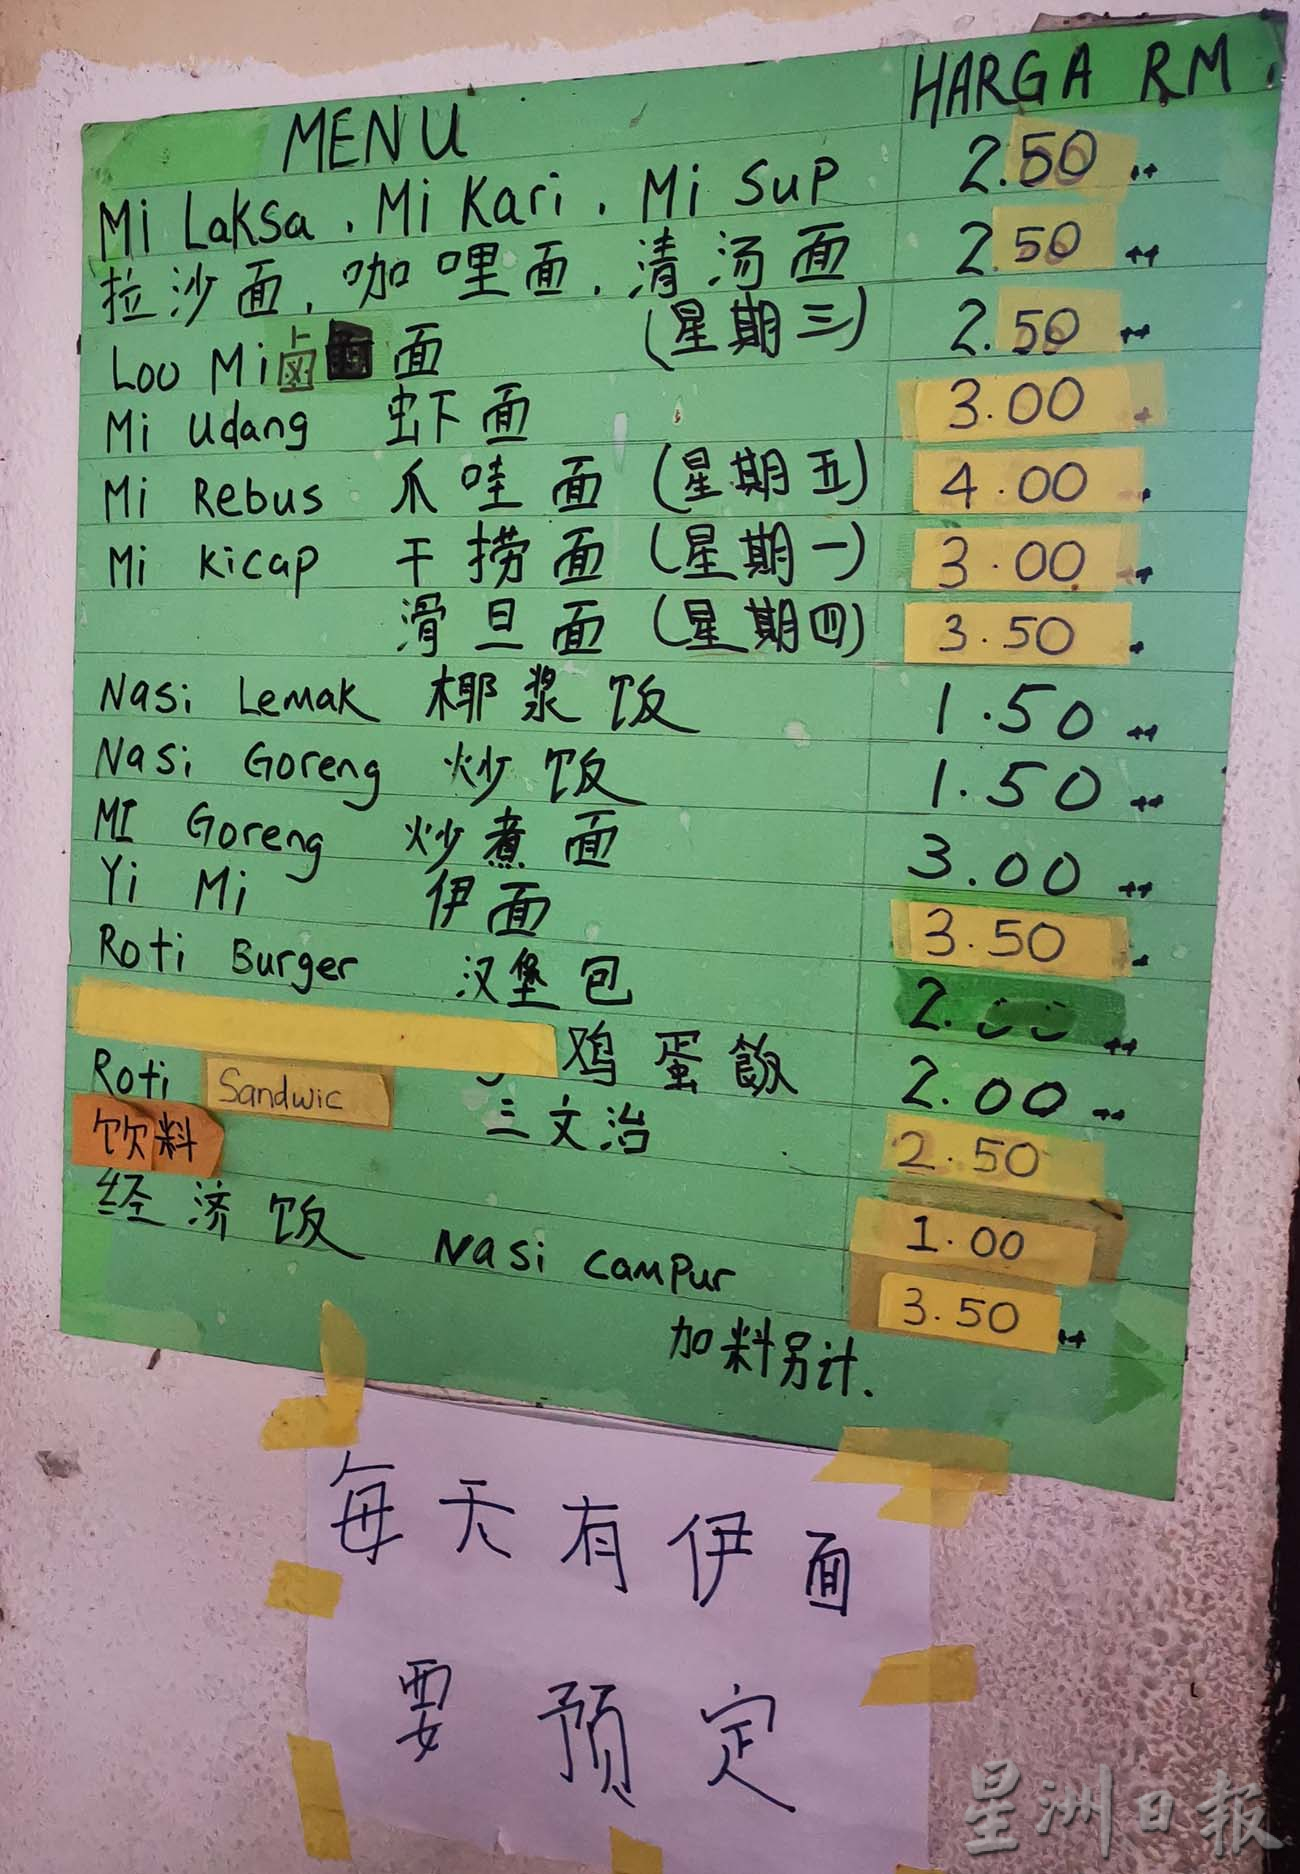 MENU HARGA RM
Mi Laksa . Mi Kari . Mi Sup 2.50
拉沙面 . 咖哩面 . 清汤面 2.50
Lou Mi 卤 面 (星期三) 2.50
Mi Udang 虾面 3.00
Mi Rebus 爪哇面 (星期五) 4.00
Mi Kicap 干捞面 (星期一) 3.00
滑旦面 (星期四) 3.50
Nasi Lemak 椰浆饭 1.50
Nasi Goreng 炒饭 1.50
MI Goreng 炒煮面 3.00
Yi Mi 伊面 3.50
Roti Burger 汉堡包 2.00
鸡蛋飯 2.00
Roti Sandwic 三文治 2.50
饮料 1.00
经济饭 Nasi Campur 3.50
加料另计.
每天有伊面
要预定
星洲日報